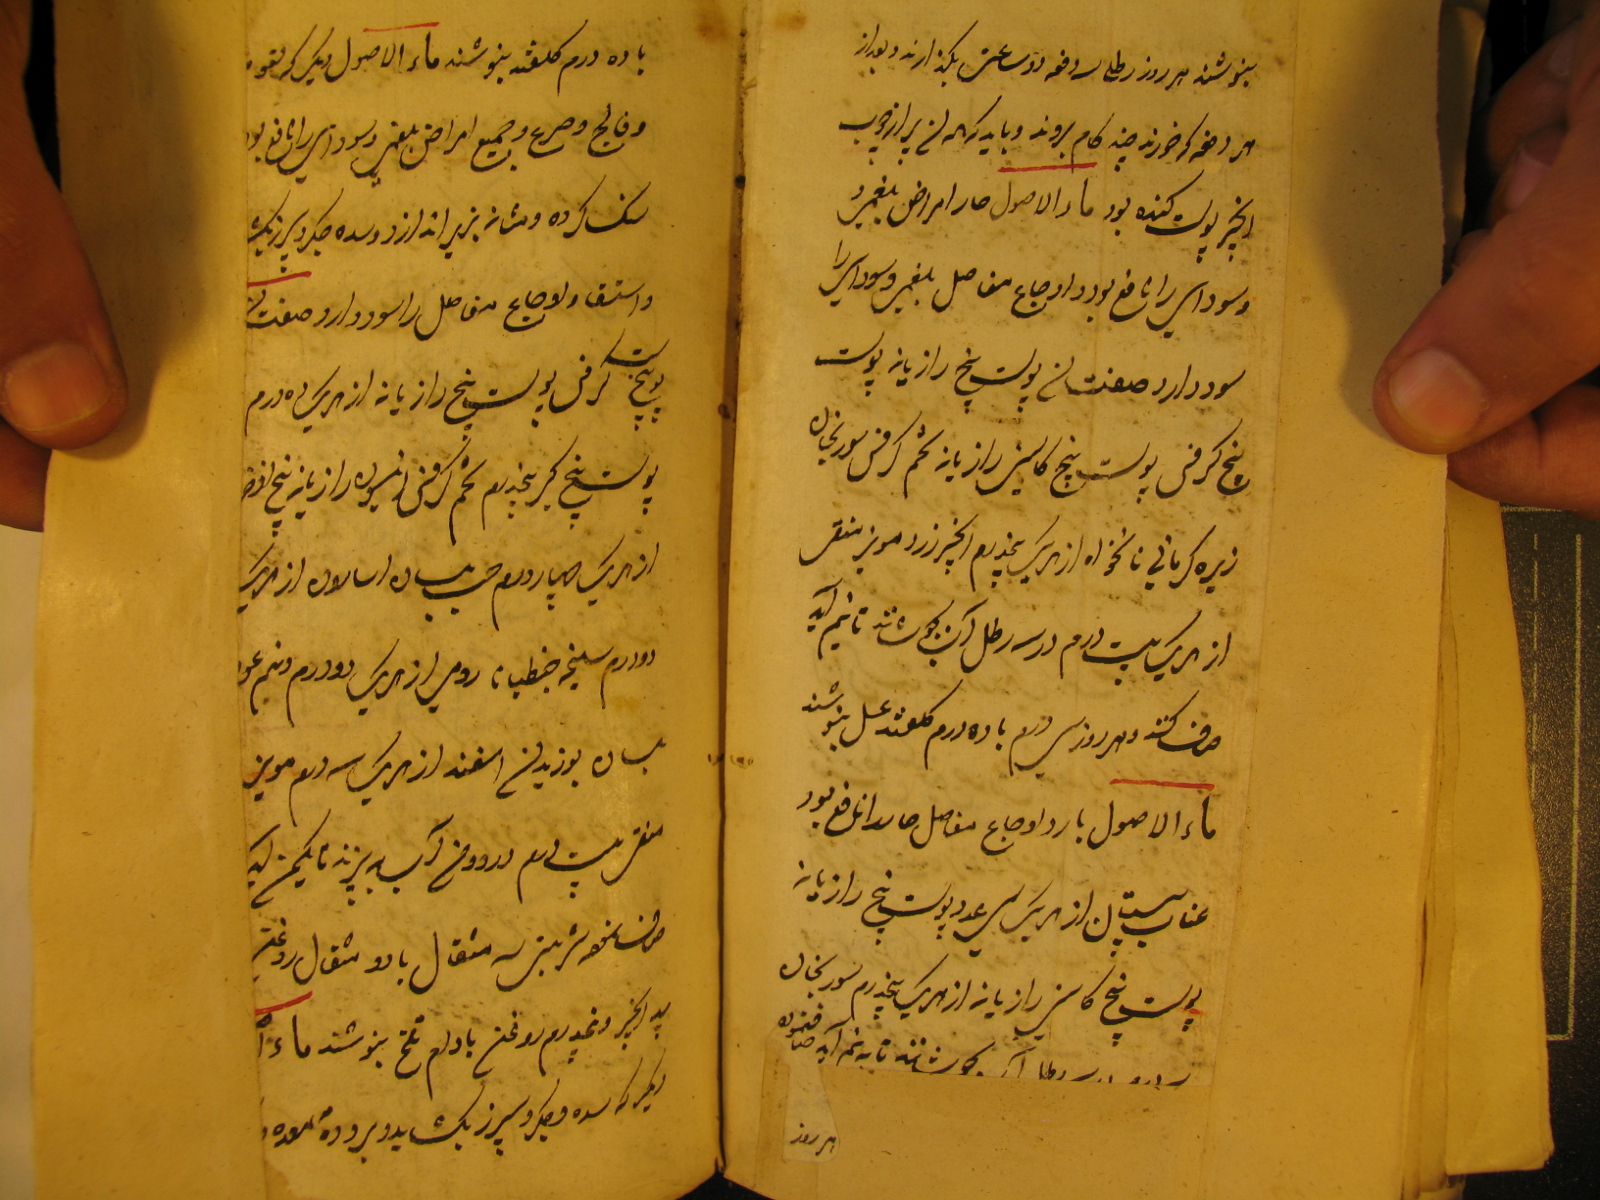 بنوشند هر روز رطلی سه دفعه دو ساعتی بگذارند و بعد از
هر دفعه که خورند چند کام بروند و باید که همه آن پر از چوب
انجیر پوست کنده بود ماء الاصول حار امراض بلغمی و
و سودایی را نافع بود و اوجاع مفاصل بلغمی و سودایی را
سود دارد صفت آن پوست بیخ رازیانه پوست
بیخ کرفس پوست بیخ کاسنی رازیانه تخم کرفس سورنجان
زیره کرمانی نانخواه از هر یک پنجدرم انجیر زرد مویز منقی
از هر یک بیست درم در سه رطل آب بجوشانند تا بنیم آید
صاف کنند و هر روز سی درم با ده درم گلقند عسل بنوشند
ماء الاصول بارد اوجاع مفاصل حار را نافع بود
عناب سپستان از هر یک سی عدد پوست بیخ رازیانه
پوست بیخ کاسنی رازیانه از هر یک پنجدرم سورنجان
رطل آب بجوشانند تا به نیم آید صاف نموده
هر روز
با ده درم گلقند بنوشند ماء الاصول دیگر که لقوه
و فالج و صرع و جمیع امراض بلغمی و سودایی را نافع بود
سنک کرده و مثانه بریزاند از رد و سده جکر و سپرز بکشا
و استسقا و اوجاع مفاصل را سود دارد صفت آن
پوست بیخ کرفس پوست بیخ رازیانه از هر یک ده درم
پوست بیخ کبر پنجدرم تخم کرفس انیسون رازیانه بیخ اذخر
از هر یک چهار درم حب بلسان اسارون از هر یک
دو درم سلیخه جنطیانا رومی از هر یک دو درم و نیم عود
بلسان بوزیدان اسفند از هر یک سه درم مویز
منقی بیست درم در دو من آب به پزند تا بیکمن آید
صاف نموده شربتی سه مثقال با دو مثقال روغن
بید انجیر و نیمدرم روغن بادام تلخ بنوشند ماء ا
دیگر که سده و جکر و سپرز بکشاید و برودة معده و